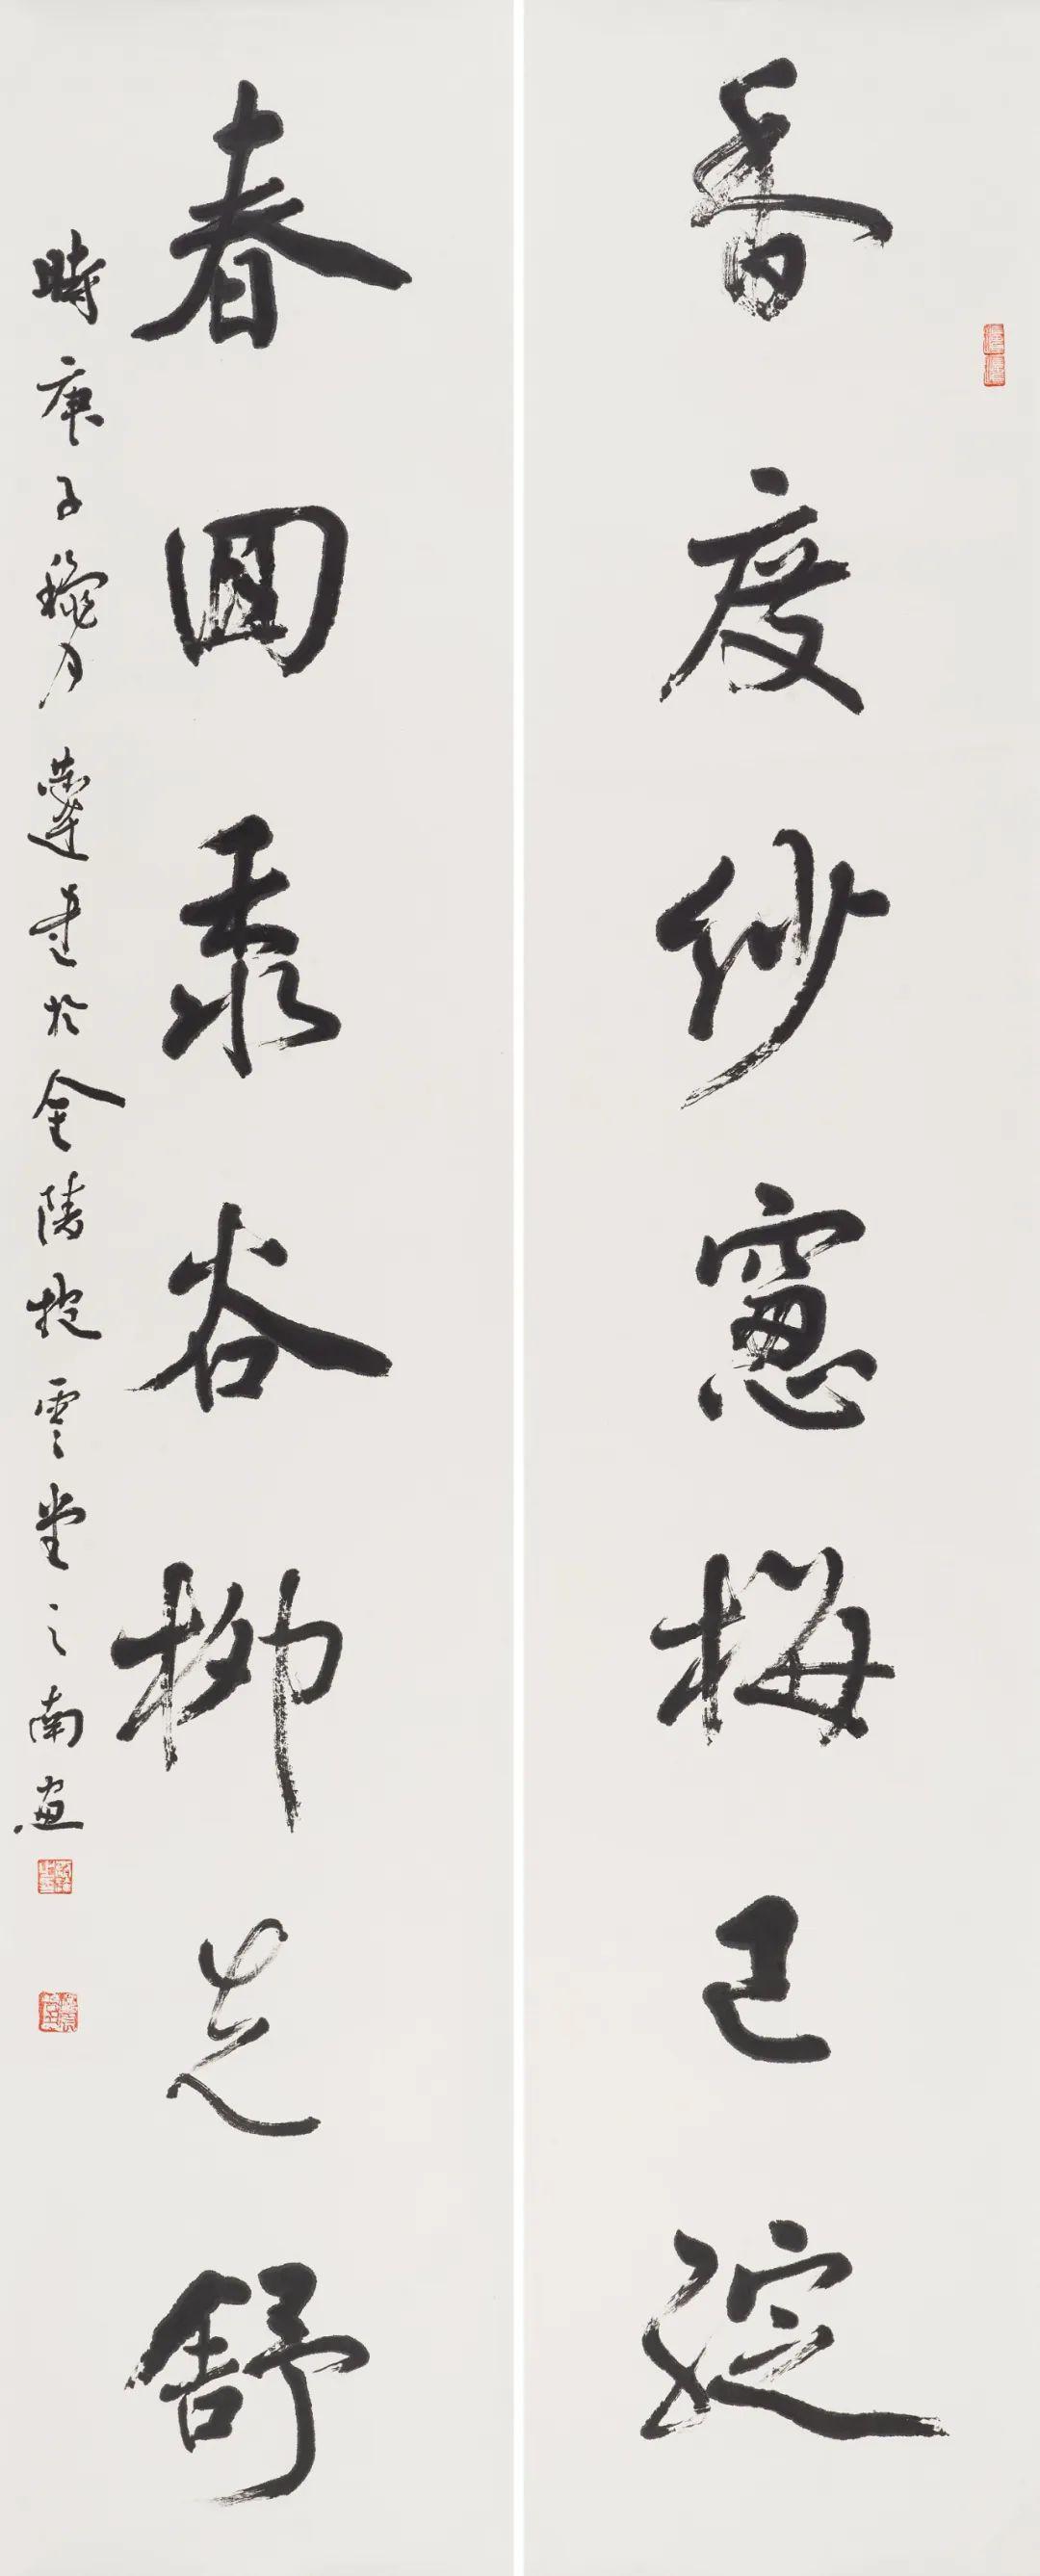 香度紗窻梅已綻
春回黍谷柳先舒
時庚子穐月蘧建於金陵抱雲堂之南窗